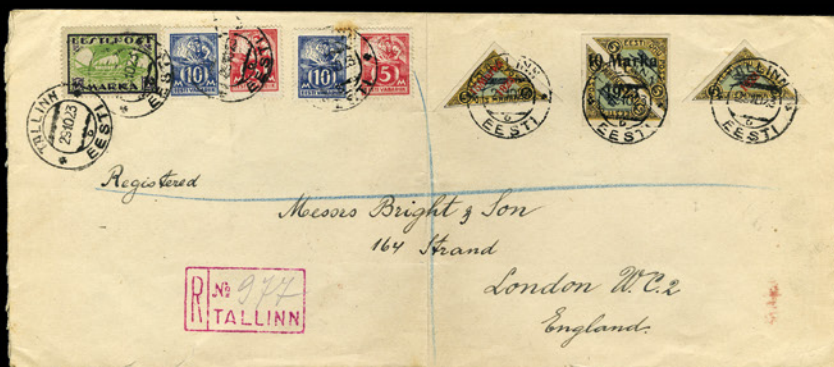 EESTI POST
MARKA
10 M
EESTI VABARIIK
10 M
EESTI VABARIIK
5 M
EESTI VABARIIK
10 Marka
1923
TALLINN
25 10 23
EESTI
EESTI
EESTI
EESTI
Registered
Messrs Bright & Son
164 Strand
London W.C.2
England.
R № 977
TALLINN